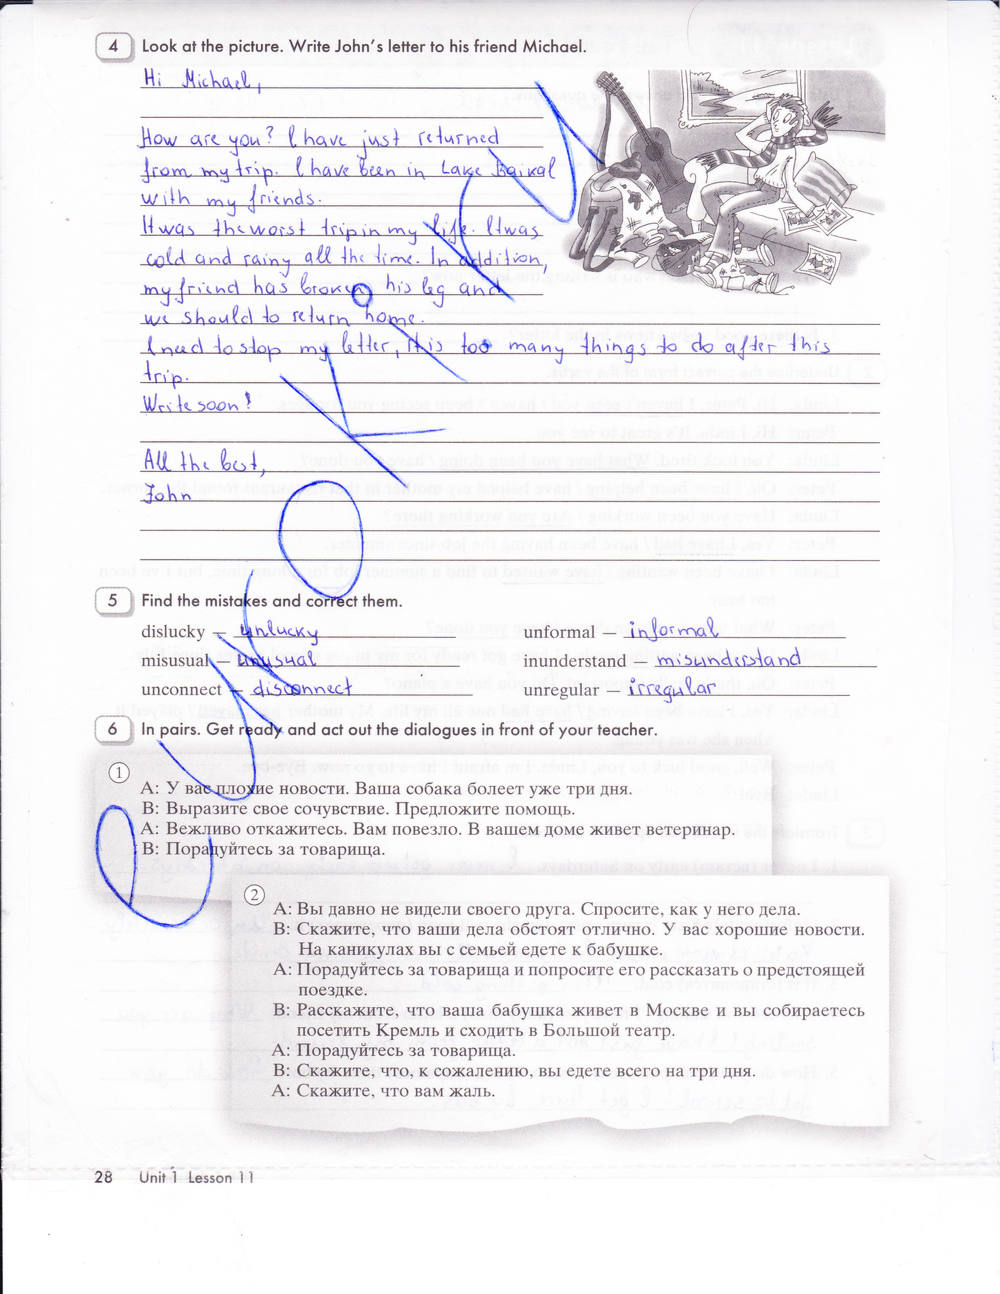 4 Look at the picture. Write John's letter to his friend Michael.
Hi Michael,
How are you? I have just returned
from my trip. I have been in Lake Baikal
with my friends.
It was the worst trip in my life. It was
cold and rainy all the time. In addition,
my friend has broken his leg and
we should to return home.
I need to stop my letter, it is too many things to do after this
trip.
Write soon!
All the best,
John
5 Find the mistakes and correct them.
dislucky — unlucky unformal — informal
misusual — unusual inunderstand — misunderstand
unconnect — disconnect unregular — irregular
6 In pairs. Get ready and act out the dialogues in front of your teacher.
1
A: У вас плохие новости. Ваша собака болеет уже три дня.
B: Выразите свое сочувствие. Предложите помощь.
A: Вежливо откажитесь. Вам повезло. В вашем доме живет ветеринар.
B: Порадуйтесь за товарища.
2
A: Вы давно не видели своего друга. Спросите, как у него дела.
B: Скажите, что ваши дела обстоят отлично. У вас хорошие новости.
На каникулах вы с семьей едете к бабушке.
A: Порадуйтесь за товарища и попросите его рассказать о предстоящей
поездке.
B: Расскажите, что ваша бабушка живет в Москве и вы собираетесь
посетить Кремль и сходить в Большой театр.
A: Порадуйтесь за товарища.
B: Скажите, что, к сожалению, вы едете всего на три дня.
A: Скажите, что вам жаль.
28 Unit 1 Lesson 11